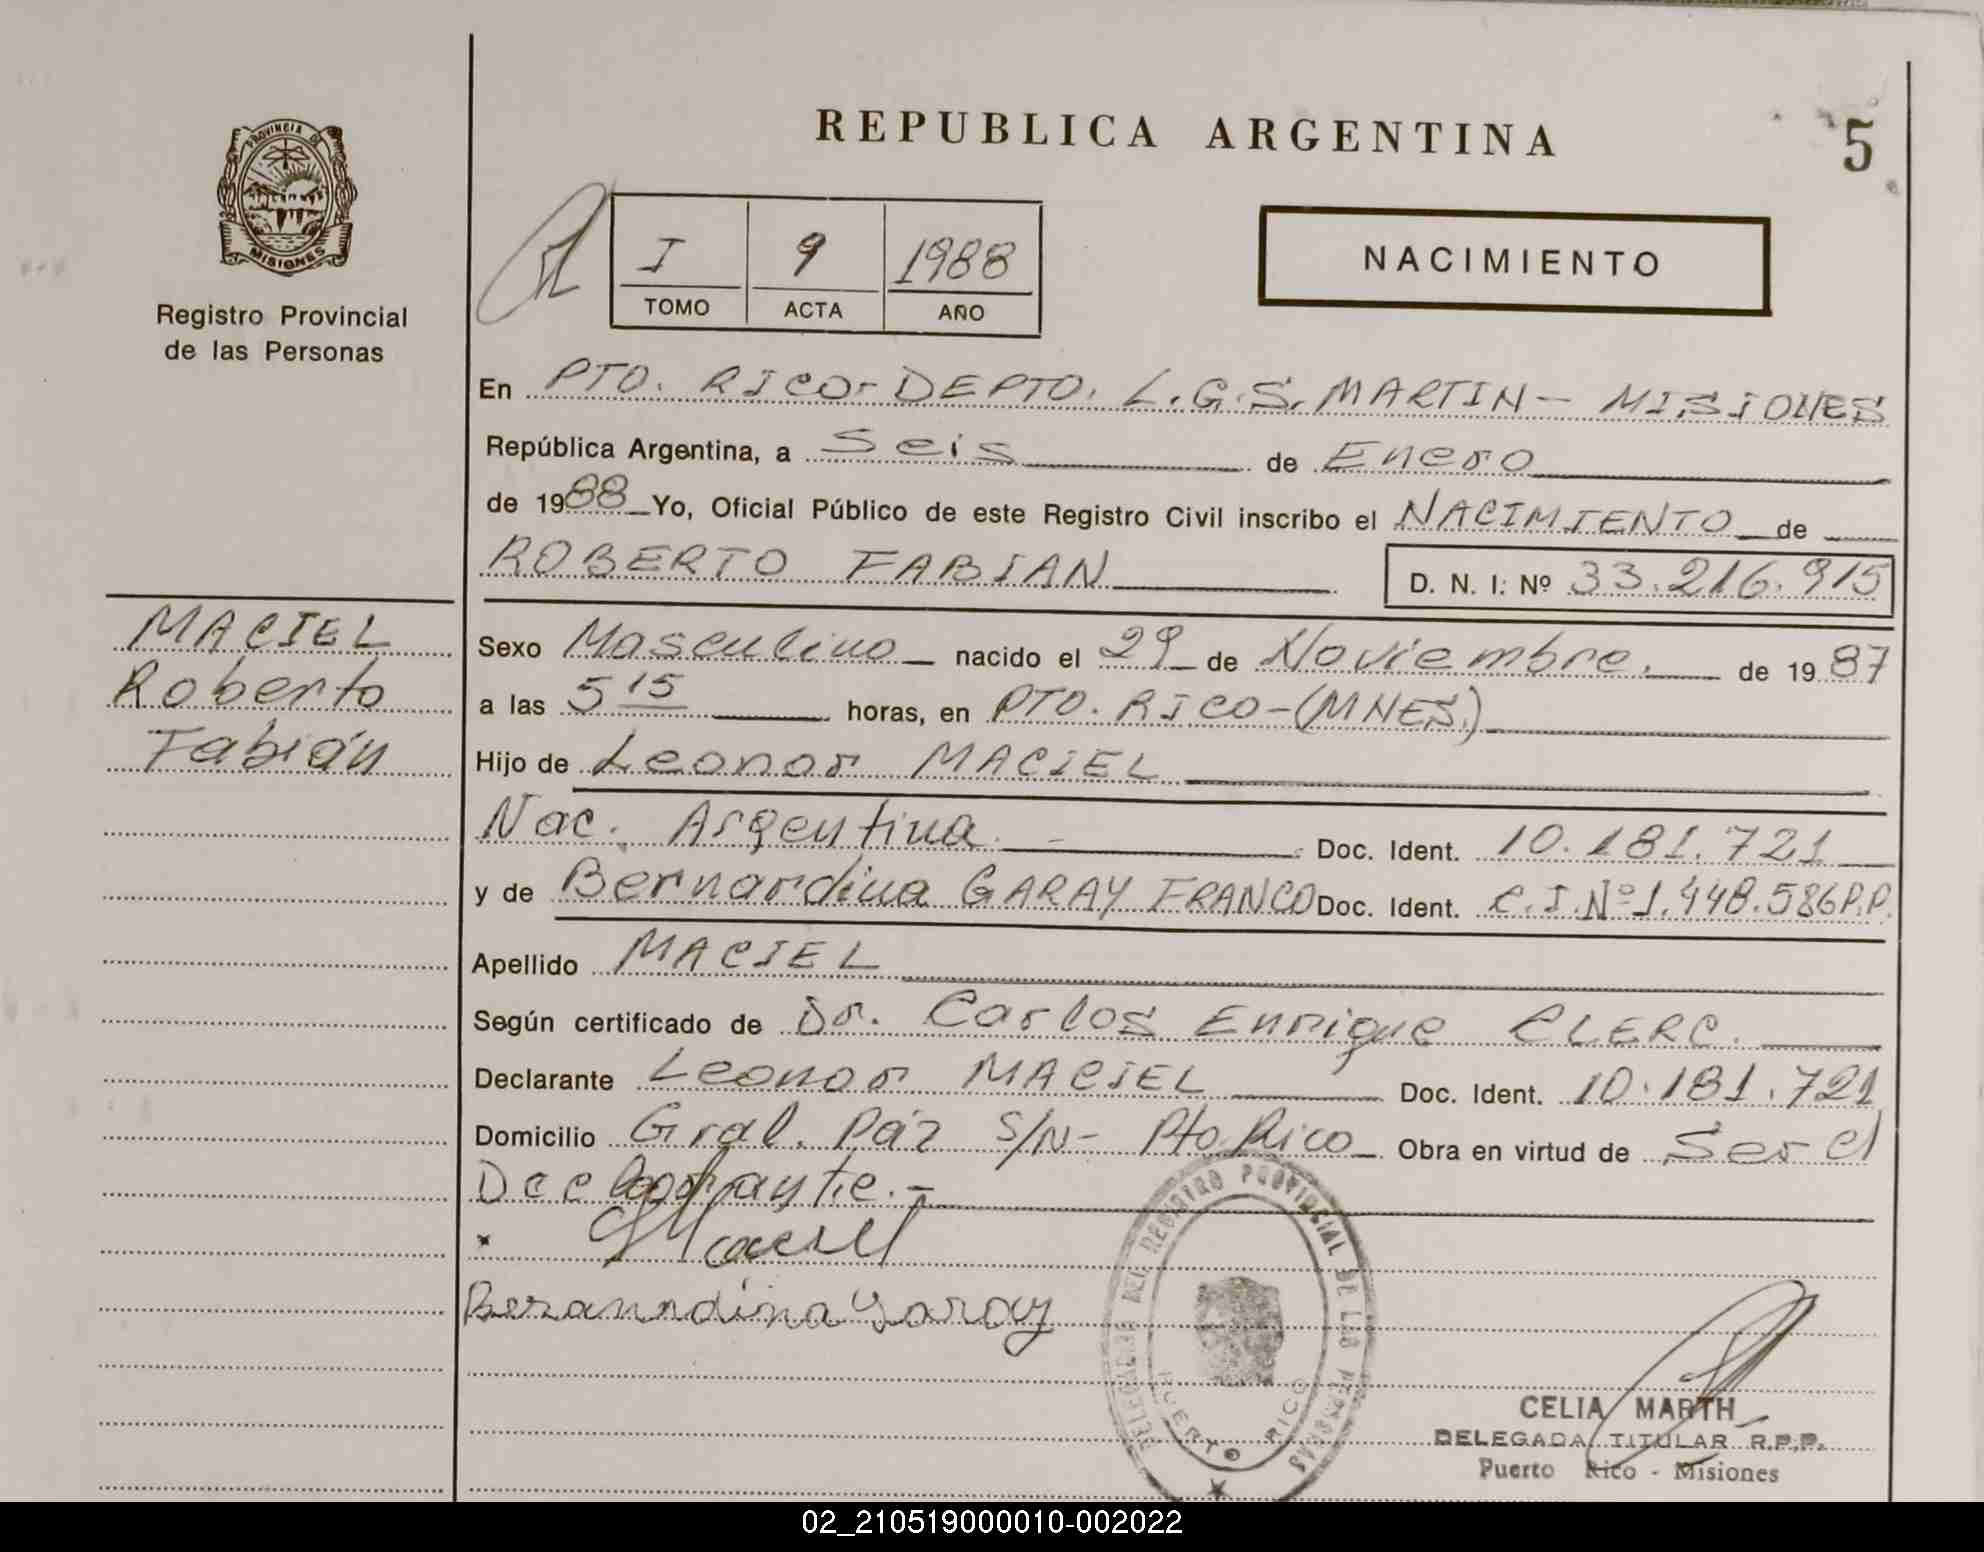 PROVINCIA DE
MISIONES
Registro Provincial
de las Personas
REPUBLICA ARGENTINA
5
I 9 1988
TOMO ACTA AÑO
NACIMIENTO
En PTO. RICO-DEPTO. L.G.S. MARTIN- MISIONES
República Argentina, a Seis de Enero
de 1988 Yo, Oficial Público de este Registro Civil inscribo el NACIMIENTO de
ROBERTO FABIAN D. N. I: Nº 33.216.915
MACIEL
Roberto
Fabián
Sexo Masculino nacido el 29 de Noviembre. de 1987
a las 5 15 horas, en PTO. RICO-(MNES.)
Hijo de Leonor MACIEL
Nac. Argentina Doc. Ident. 10.181.721
y de Bernardina GARAY FRANCO Doc. Ident. C.I.Nº1.448.586P.P.
Apellido MACIEL
Según certificado de Dr. Carlos Enrique CLERC.
Declarante Leonor MACIEL Doc. Ident. 10.181.721
Domicilio Gral. Páz S/N- Pto. Rico Obra en virtud de Ser el
Declarante.-
Maciel
Beranrdina Garay
DELEGACION DEL REGISTRO PROVINCIAL DE LAS PERSONAS
PUERTO RICO
CELIA MARTH
DELEGADA TITULAR R.P.P.
Puerto Rico - Misiones
02_210519000010-002022